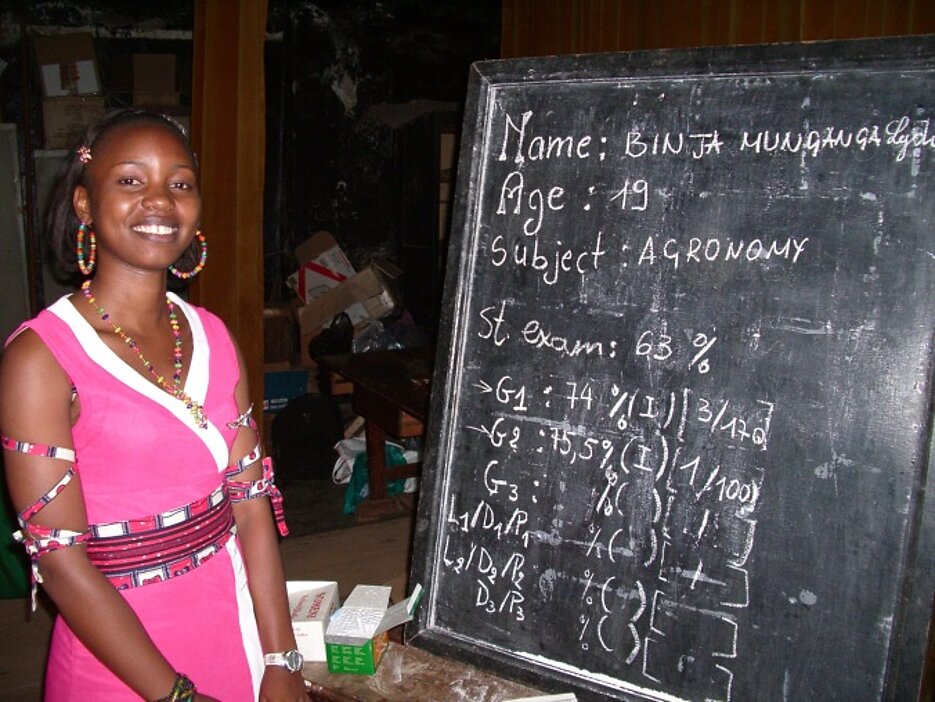 Name: BINJA MUNGANGA
Age : 19
Subject : AGRONOMY
St. exam: 63 %
→G1 : 74 % (I) [3/170]
→G2 : 75,5% (I) [1/100]
G3 : % ( ) [ / ]
L1/D1/P1 % ( ) [ / ]
L2/D2/P2 % ( ) [ ]
D3/P3 % ( ) [ ]